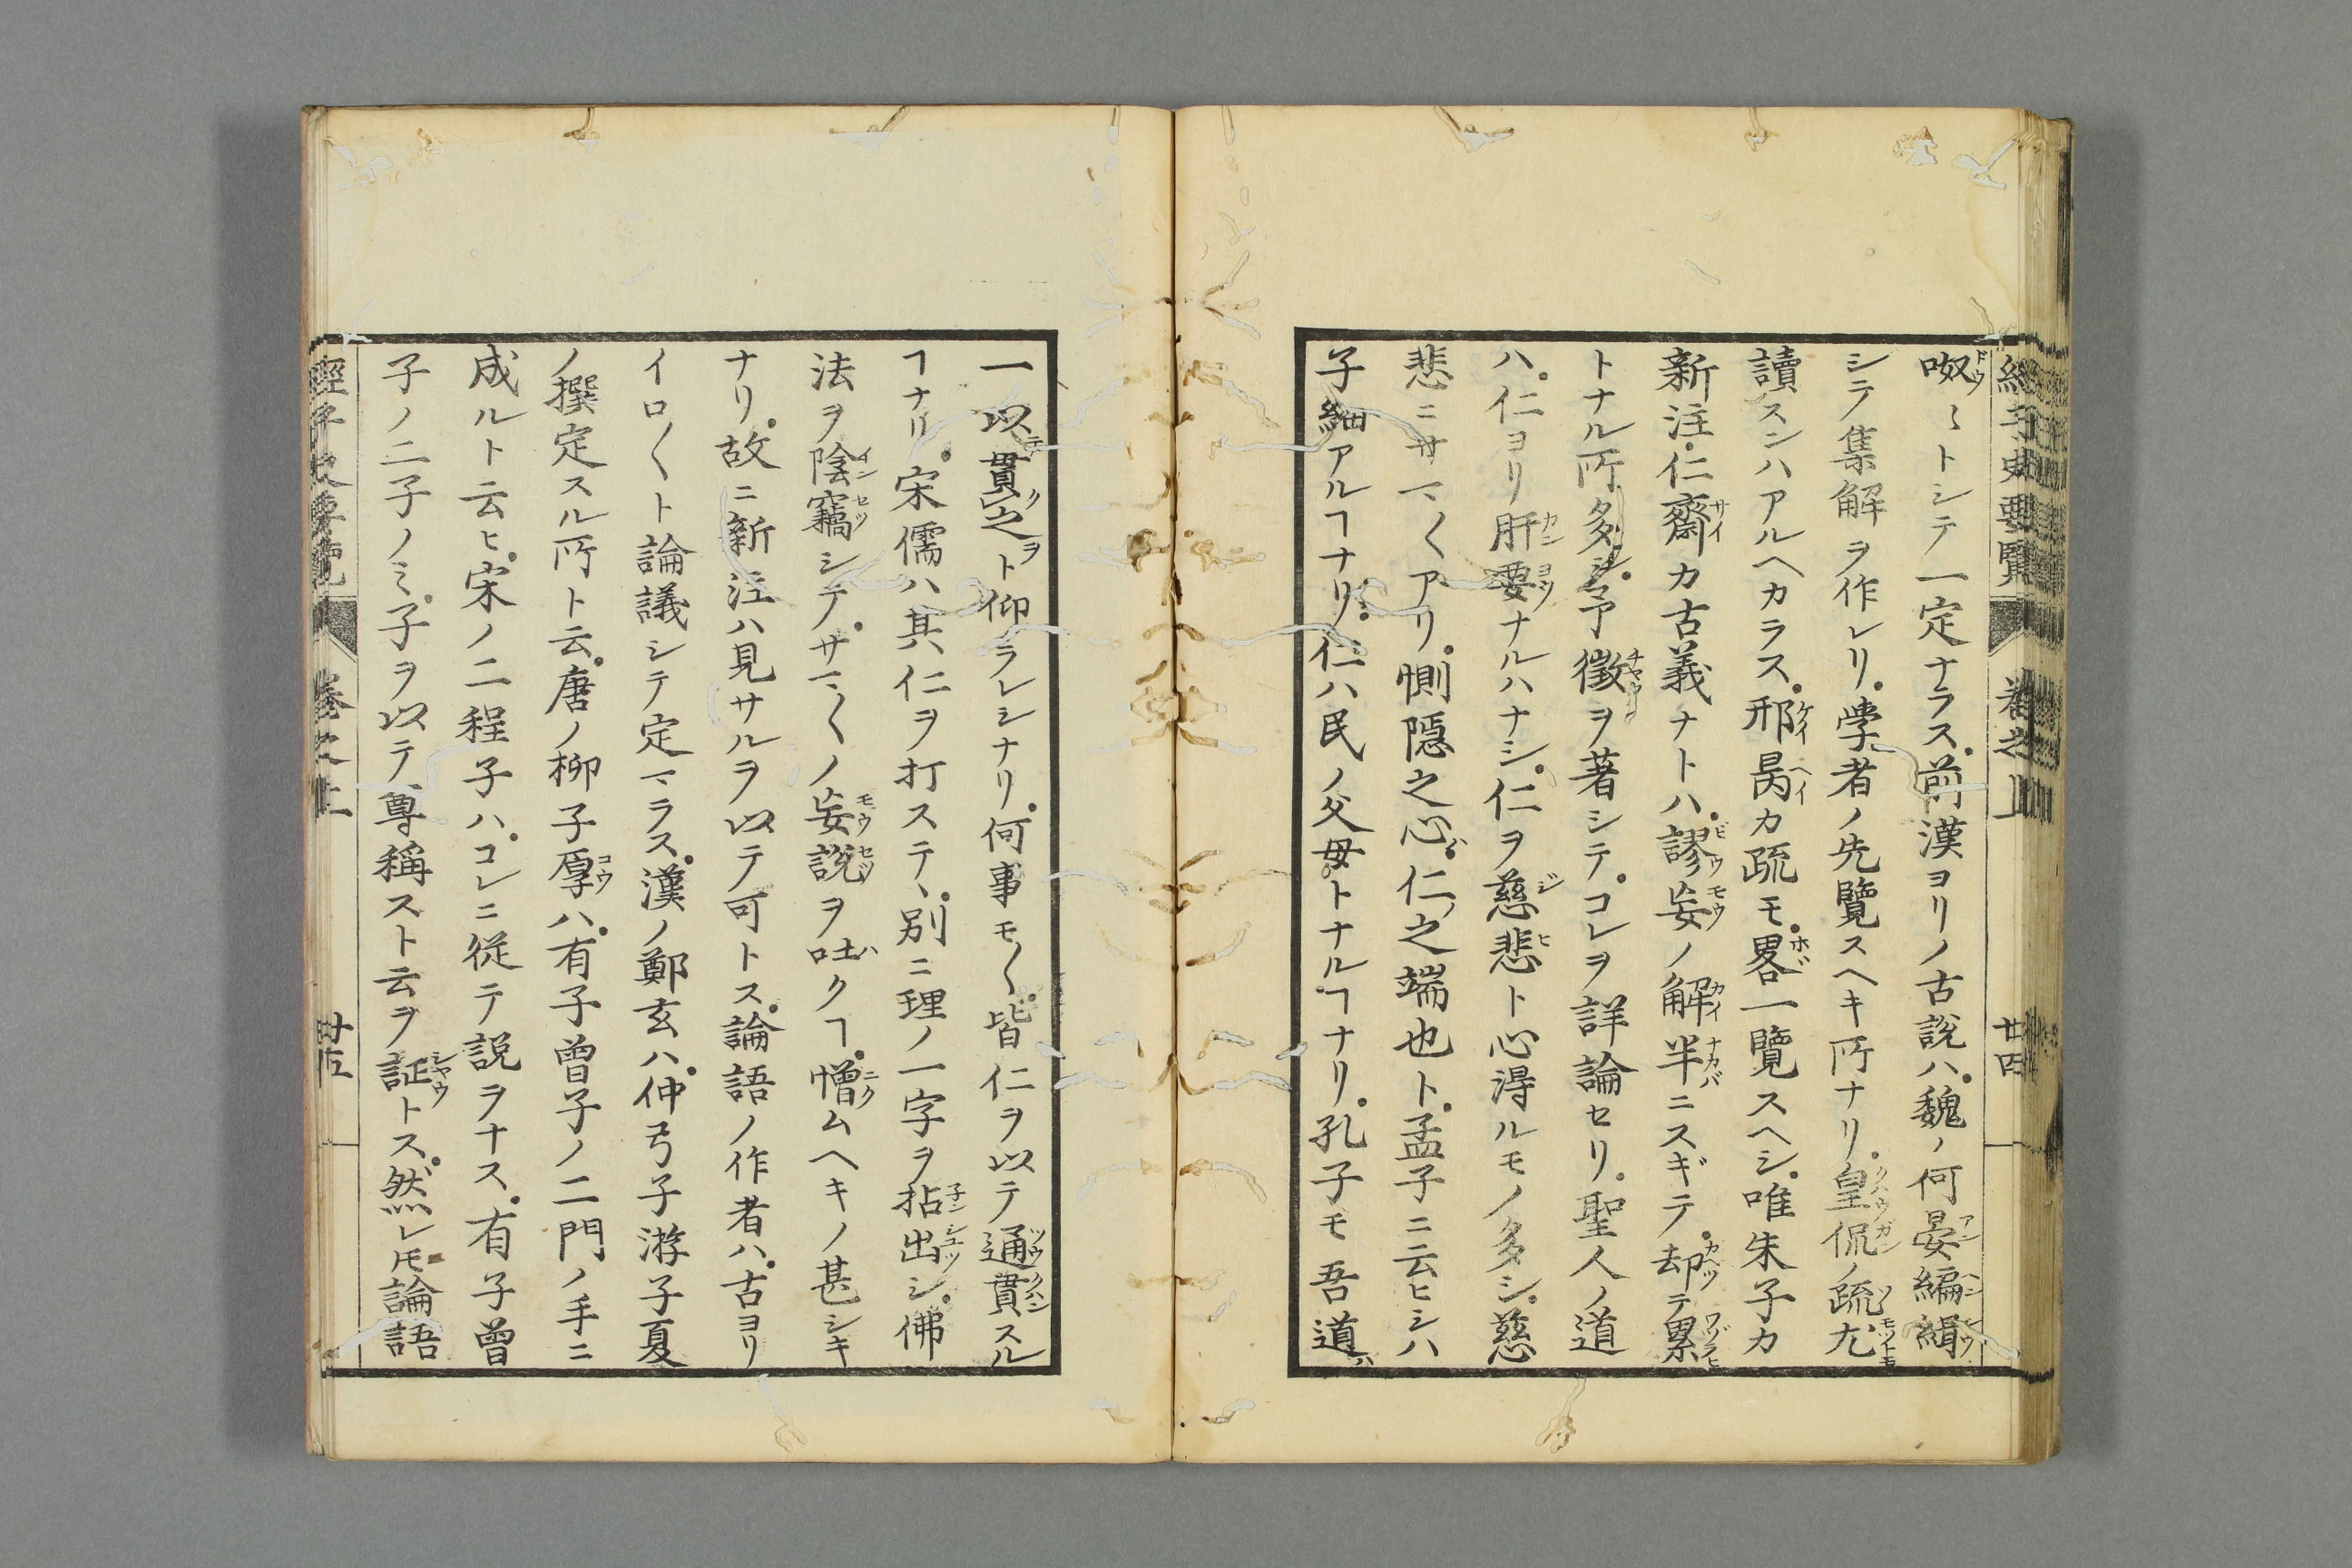 經子史要覽 卷之上 廿四
呶〻トシテ一定ナラス。前漢ヨリノ古説ハ。魏ノ何晏編緝
シテ集解ヲ作レリ。學者ノ先覽スヘキ所ナリ。皇侃ノ疏尤
讀スンハアルヘカラス。邢昺カ疏モ。畧一覽スヘシ。唯朱子カ
新注。仁齋カ古義ナトハ。謬妄ノ解半ニスギテ。却テ累
トナル所多シ。予徵ヲ著シテ。コレヲ詳論セリ。聖人ノ道
ハ。仁ヨリ肝要ナルハナシ。仁ヲ慈悲ト心得ルモノ多シ。慈
悲ニサマ〱アリ。惻隠之心ハ。仁之端也ト。孟子ニ云ヒシハ
子細アルヿナリ。仁ハ民ノ父母トナルヿナリ。孔子モ吾道ハ
一以テ貫クㇾ之ヲト仰ラレシナリ。何事モ〱。皆仁ヲ以テ通貫スル
ヿナリ。宋儒ハ其仁ヲ打ステヽ。別ニ理ノ一字ヲ拈出シ。佛
法ヲ陰竊シテ。サマ〱ノ妄説ヲ吐クヿ。憎ムヘキノ甚シキ
ナリ。故ニ新注ハ見サルヲ以テ可トス。論語ノ作者ハ。古ヨリ
イロ〱ト論議シテ定マラス。漢ノ鄭玄ハ。仲弓子游子夏
ノ撰定スル所ト云。唐ノ柳子厚ハ。有子曾子ノ二門ノ手ニ
成ルト云ヒ。宋ノ二程子ハ。コレニ従テ説ヲナス。有子曾
子ノ二子ノミ。子ヲ以テ尊稱スト云ヲ証トス。然レ𪜈論語
經子史要覽 卷之上 廿五